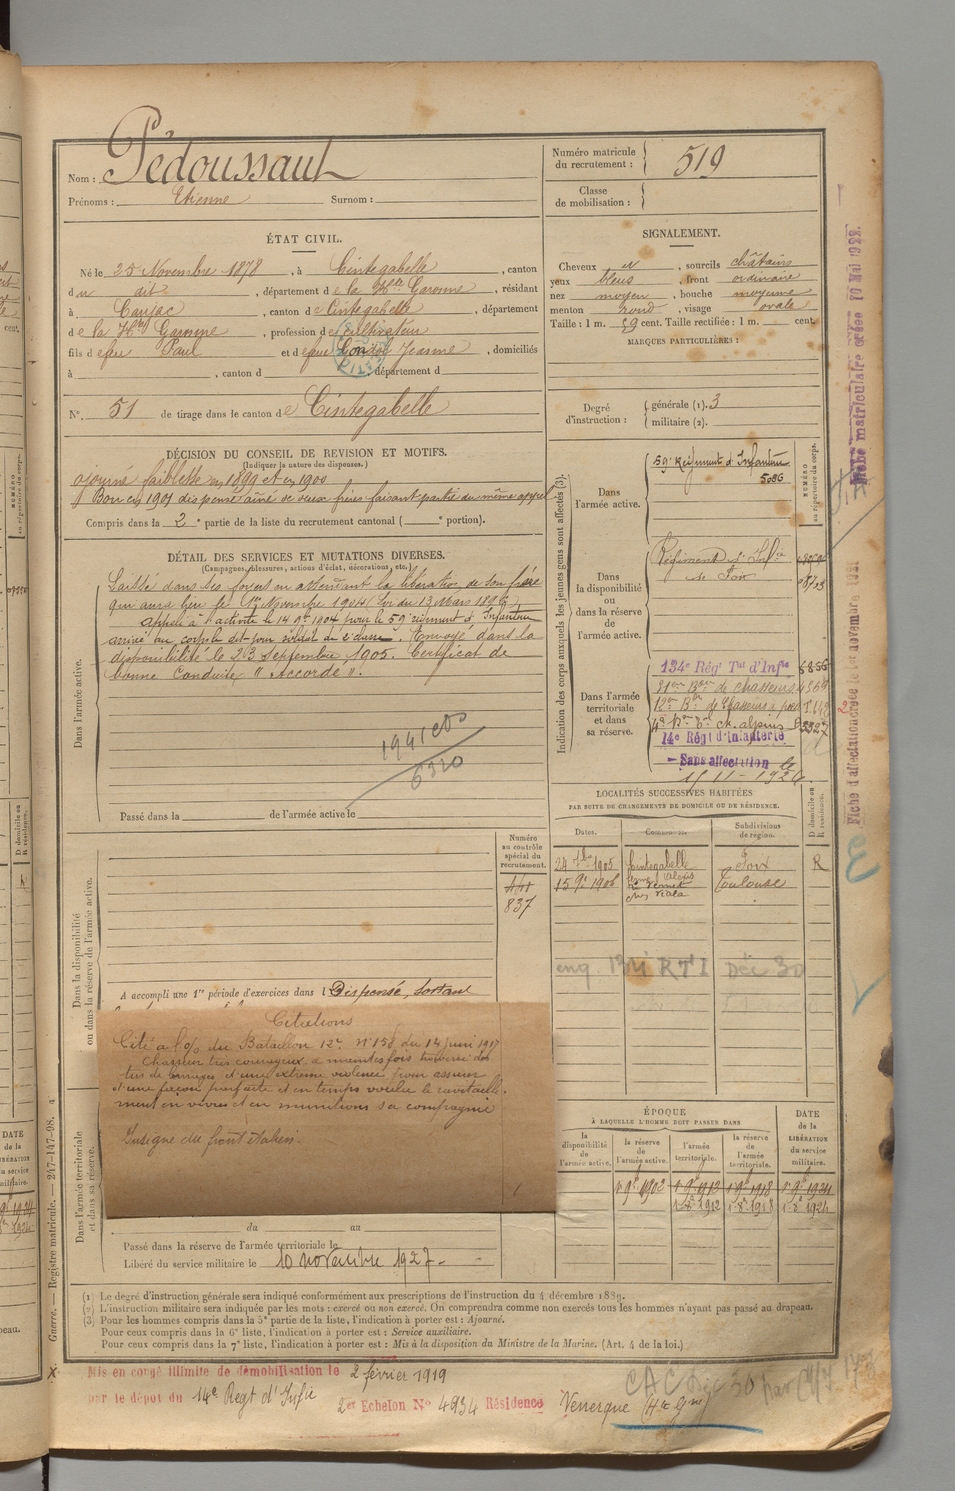 Nom : Pédoussaut
Prénoms : Etienne Surnom :
Numéro matricule du recrutement : 519
Classe de mobilisation :
ÉTAT CIVIL.
Né le 25 Novembre 1878, à Cintegabelle, canton
du dit, département de la Hte Garonne, résidant
à Caujac, canton de Cintegabelle, département
de la Hte Garonne, profession de cultivateur
fils de feu Paul et de feue Jeanne, domiciliés
à , canton d , département d
N° 51 de tirage dans le canton de Cintegabelle
SIGNALEMENT.
Cheveux et, sourcils châtains
yeux bleus, front ordinaire
nez moyen, bouche moyenne
menton rond, visage ovale
Taille : 1 m. 59 cent. Taille rectifiée : 1 m. cent.
MARQUES PARTICULIÈRES :
Degré d'instruction : générale (1). 3
militaire (2).
DÉCISION DU CONSEIL DE REVISION ET MOTIFS.
(Indiquer la nature des dispenses.)
ajourné faiblesse en 1899 et en 1900
Bon en 1901 dispensé aîné de deux frères faisant partie du même appel
Compris dans la 2e partie de la liste du recrutement cantonal ( e portion).
DÉTAIL DES SERVICES ET MUTATIONS DIVERSES.
(Campagnes, blessures, actions d'éclat, décorations, etc.)
Dans l'armée active.
Laissé dans ses foyers en attendant la libération de son frère
qui aura lieu le 1er Novembre 1904 (Loi du 13 Mars 1896)
appelé à l'activité le 14 9bre 1904 pour le 59e régiment d'Infanterie
arrivé au corps le dit jour soldat de 2e classe. Envoyé dans la
disponibilité le 23 septembre 1905. Certificat de
bonne Conduite "Accordé".
6320
Passé dans la de l'armée active le
Indication des corps auxquels les jeunes gens sont affectés (3).
NUMÉRO au répertoire du corps.
Dans l'armée active.
59e Régiment d'Infanterie
5086
Dans la disponibilité ou dans la réserve de l'armée active.
Régiment d'Infie
de Foix
Dans l'armée territoriale et dans sa réserve.
134e Rég Tal d'Infie 6856
12e Bon de Chasseurs à pied
14e Régt d'Infanterie
Sans affectation le
LOCALITÉS SUCCESSIVES HABITÉES
PAR SUITE DE CHANGEMENTS DE DOMICILE OU DE RÉSIDENCE.
Dates. Communes. Subdivisions de région. D domicile ou R résidence.
24 7bre 1905 Cintegabelle Foix R
15 9bre 1906 Toulouse
chez Viala
Numéro au contrôle spécial du recrutement.
837
Dans la disponibilité ou dans la réserve de l'armée active.
A accompli une 1re période d'exercices dans l Dispensé,
Citations
Cité à l'o/ du Bataillon 12e N° 158 du 14 juin 1917
Chasseur très courageux a maintes fois traversé des
tirs de barrages d'une extrême violence pour assurer
d'une façon parfaite et en temps voulu le ravitaille
ment en vivres et en munitions de sa compagnie
Insigne du front italien.
eng. 134 RTI Déc 30
Dans l'armée territoriale et dans sa réserve.
du au
Passé dans la réserve de l'armée territoriale le
Libéré du service militaire le 10 novembre 1927
ÉPOQUE
À LAQUELLE L'HOMME DOIT PASSER DANS
la disponibilité de l'armée active.
la réserve de l'armée active.
l'armée territoriale.
la réserve de l'armée territoriale.
DATE de la LIBÉRATION du service militaire.
1er 9bre 1902 1er 9bre 1912 1er 9bre 1918 1er 9bre 1924
1-8e 1912 1-8e 1918 1-8e 1924
(1) Le degré d'instruction générale sera indiqué conformément aux prescriptions de l'instruction du 4 décembre 1889.
(2) L'instruction militaire sera indiquée par les mots : exercé ou non exercé. On comprendra comme non exercés tous les hommes n'ayant pas passé au drapeau.
(3) Pour les hommes compris dans la 5e partie de la liste, l'indication à porter est : Ajourné.
Pour ceux compris dans la 6e liste, l'indication à porter est : Service auxiliaire.
Pour ceux compris dans la 7e liste, l'indication à porter est : Mis à la disposition du Ministre de la Marine. (Art. 4 de la loi.)
Mis en congé illimité de démobilisation le 2 février 1919
par le dépôt du 14e Regt d'Infie
2er Echelon N° 4934 Résidence Venerque (Hte Gne)
Guerre. — Registre matricule. — 247-147-98.
Fiche matriculaire créée 10 Mai 1922.
Fiche d'affectation créée le 1er novembre 1921